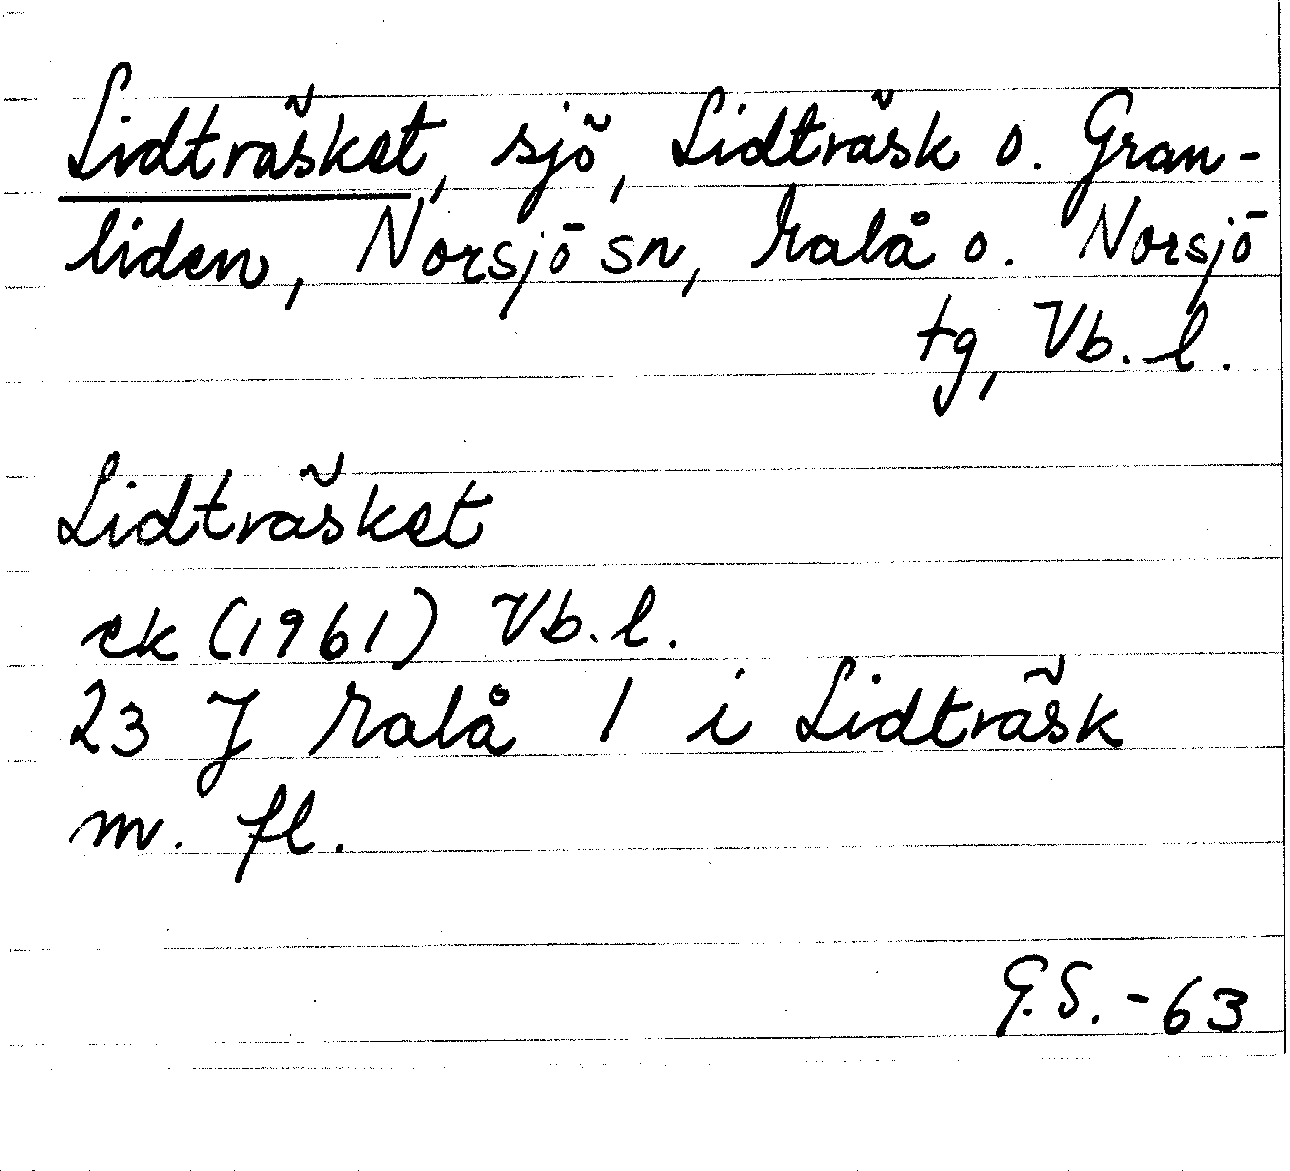 Lidträsket, sjö, Lidträsk o. Gran-
liden, Norsjö sn, Malå o. Norsjö
tg, Vb. l.
Lidträsket
ek (1961) Vb. l.
23 J Malå 1 i Lidträsk
m. fl.
G.S. -63